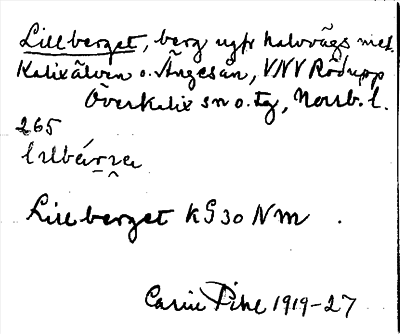 Lillberget, berg ugfr halvvägs mel.
Kalixälven o. Ängesån, VNV Rödupp
Överkalix sn o. tg, Norrb. l.
265
Lillberget KG30 Nm
Carin Pihl 1919-27